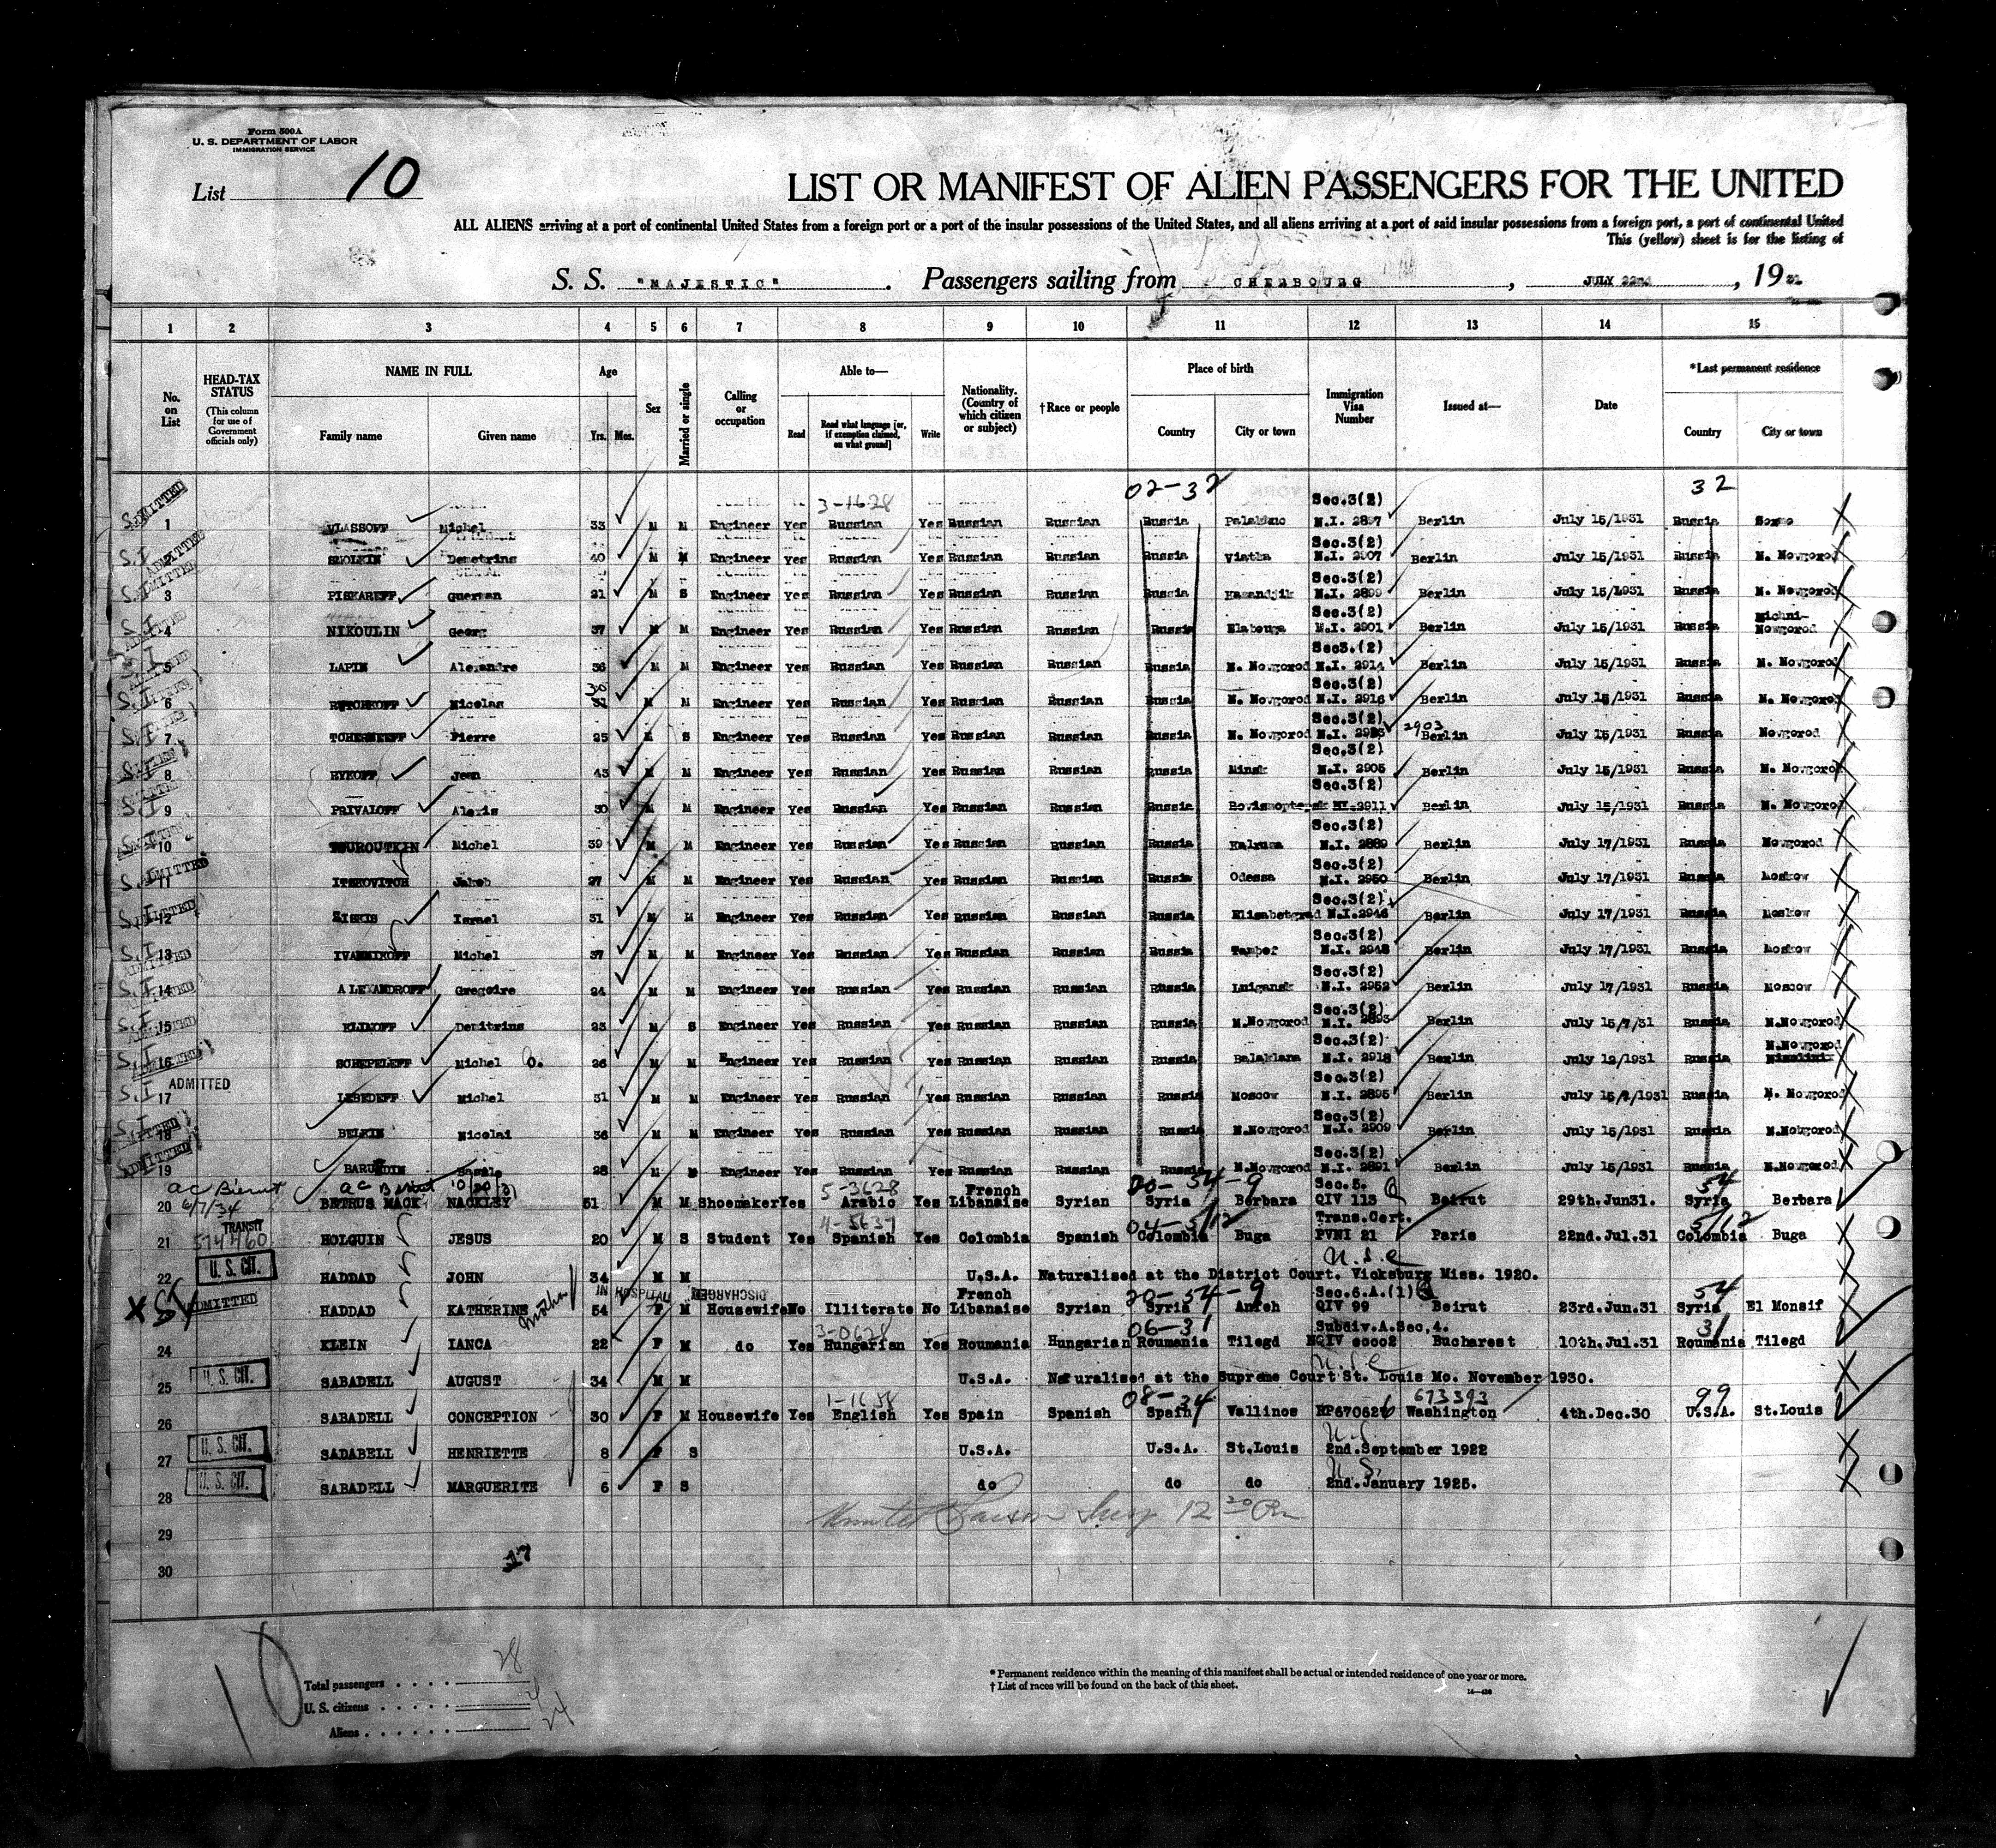 Form 500A
U. S. DEPARTMENT OF LABOR
IMMIGRATION SERVICE
List 10
LIST OR MANIFEST OF ALIEN PASSENGERS FOR THE UNITED
ALL ALIENS arriving at a port of continental United States from a foreign port or a port of the insular possessions of the United States, and all aliens arriving at a port of said insular possessions from a foreign port, a port of continental United
This (yellow) sheet is for the listing of
S. S. "MAJESTIC" . Passengers sailing from CHERBOURG , JULY 22nd , 1931.
1 2 3 4 5 6 7 8 9 10 11 12 13 14 15
No. on List
HEAD-TAX STATUS (This column for use of Government officials only)
NAME IN FULL Family name Given name
Age Yrs. Mos.
Sex
Married or single
Calling or occupation
Able to— Read Read what language [or, if exemption claimed, on what ground] Write
Nationality. (Country of which citizen or subject)
†Race or people
Place of birth Country City or town
Immigration Visa Number
Issued at—
Date
*Last permanent residence Country City or town
3-1628 02-32 Sec.3(2) 32
S.I ADMITTED 1 VLASSOFF Michel 33 M M Engineer Yes Russian Yes Russian Russian Russia N.I. 2897 Berlin July 15/1931 Russia
Sec.3(2)
S.I ADMITTED Demetrius 40 M M Engineer Yes Russian Yes Russian Russian Russia Viatka N.I. 2907 Berlin July 15/1931 Russia N. Novgorod
Sec.3(2)
S.I ADMITTED 3 PISKAREFF Guerman 21 M S Engineer Yes Russian Yes Russian Russian Russia Kasandjik N.I. 2899 Berlin July 15/1931 Russia N. Novgorod
Sec.3(2) Nichni-
S.I 4 NIKOULIN Georg 37 M M Engineer Yes Russian Yes Russian Russian Russia Elabouga N.I. 2901 Berlin July 15/1931 Russia Nowgorod
Sec3.(2)
S.I 5 LAPIN Alexandre 36 M M Engineer Yes Russian Yes Russian Russian Russia N. Novgorod N.I. 2914 Berlin July 15/1931 Russia N. Novgorod
30 Sec.3(2)
S.I 6 Nicolas 31 M M Engineer Yes Russian Yes Russian Russian Russia N. Novgorod N.I. 2916 Berlin July 15/1931 Russia N. Novgorod
Sec.3(2) 2903
S.I 7 Pierre 25 M S Engineer Yes Russian Yes Russian Russian Russia N. Novgorod N.I. Berlin July 15/1931 Russia Novgorod
Sec.3(2)
S.I 8 RYKOFF Jean 43 M M Engineer Yes Russian Yes Russian Russian Russia Minsk N.I. 2905 Berlin July 15/1931 Russia N. Novgorod
Sec.3(2)
S.I 9 PRIVALOFF Alexis 30 M M Engineer Yes Russian Yes Russian Russian Russia NI.2911 Berlin July 15/1931 Russia N. Novgorod
Sec.3(2)
10 Michel 39 M M Engineer Yes Russian Yes Russian Russian Russia N.I. 2889 Berlin July 17/1931 Russia Novgorod
Sec.3(2)
S.I ADMITTED 11 ITSKOVITCH Jakob 27 M M Engineer Yes Russian Yes Russian Russian Russia Odessa N.I. 2950 Berlin July 17/1931 Russia Moskow
Sec.3(2)
S.I 12 Israel 31 M M Engineer Yes Russian Yes Russian Russian Russia Elisabetgrad N.I.2946 Berlin July 17/1931 Russia Moskow
Sec.3(2)
S.I 13 Michel 37 M M Engineer Yes Russian Yes Russian Russian Russia Tambof N.I. 2948 Berlin July 17/1931 Russia Moskow
Sec.3(2)
S.I 14 ALEXANDROFF Gregoire 24 M M Engineer Yes Russian Yes Russian Russian Russia Lugansk N.I. 2952 Berlin July 17/1931 Russia Moscow
Sec.3(2)
S.I 15 Demitrius 23 M S Engineer Yes Russian Yes Russian Russian Russia N.Novgorod N.I. 2893 Berlin July 15/7/31 Russia N.Novgorod
Sec.3(2) N.Novgorod
S.I 16 SCHEPELEFF Michel O. 26 M M Engineer Yes Russian Yes Russian Russian Russia Balaklana N.I. 2918 Berlin July 12/1931 Russia
ADMITTED Sec.3(2)
S.I 17 LEBEDEFF Michel 31 M M Engineer Yes Russian Yes Russian Russian Russia Moscow N.I. 2895 Berlin Russia N. Novgorod
Sec.3(2)
S.I 18 BELKIN Nicolai 36 M M Engineer Yes Russian Yes Russian Russian Russia N.Novgorod N.I. 2909 Berlin July 15/1931 Russia N.Novgorod
Sec.3(2)
ADMITTED 19 Basile 28 M Engineer Yes Russian Yes Russian Russian Russia N.Novgorod N.I. 2891 Berlin July 15/1931 Russia N.Novgorod
ac Bierut ac Beirut 10/20/31 5-3628 French 20-54-9 Sec.5. 54
6/7/34 20 BETRUS MACK NACKLEY 51 M M Shoemaker Yes Arabic Yes Libanaise Syrian Syria Berbara QIV 113 Beirut 29th.Jun31. Syria Berbara
TRANSIT 4-5637 04-5/12 Trans.Cert. 5/12
574460 21 HOLGUIN JESUS 20 M S Student Yes Spanish Yes Colombia Spanish Colombia Buga PVNI 21 Paris 22nd.Jul.31 Colombia Buga
U. S. CIT. U.S.C
22 HADDAD JOHN 34 M M U.S.A. Naturalised at the District Court. Vicksburg Miss. 1920.
IN HOSPITAL DISCHARGED French 20-54-9 Sec.6.A.(1) 54
X SI ADMITTED HADDAD KATHERINE mother 54 F M Housewife No Illiterate No Libanaise Syrian Syria Anfeh QIV 99 Beirut 23rd.Jun.31 Syria El Monsif
3-0628 06-31 Subdiv.A.Sec.4. 31
24 KLEIN IANCA 22 F M do Yes Hungarian Yes Roumania Hungarian Roumania Tilegd NQIV Bucharest 10th.Jul.31 Roumania Tilegd
U. S. CIT. U.S.C
25 SABADELL AUGUST 34 M M U.S.A. Naturalised at the Supreme Court St. Louis Mo. November 1930.
1-1638 08-34 673393 99
26 SABADELL CONCEPTION 30 F M Housewife Yes English Yes Spain Spanish Spain Vallinos Washington 4th.Dec.30 U.S.A. St.Louis
U. S. CIT. U.S.
27 SADABELL HENRIETTE 8 F S U.S.A. U.S.A. St.Louis 2nd.September 1922
U. S. CIT. U.S.
28 SABADELL MARGUERITE 6 F S do do do 2nd.January 1925.
12 20
29
17
30
10
Total passengers 28
U. S. citizens 4
Aliens 24
* Permanent residence within the meaning of this manifest shall be actual or intended residence of one year or more.
† List of races will be found on the back of this sheet.